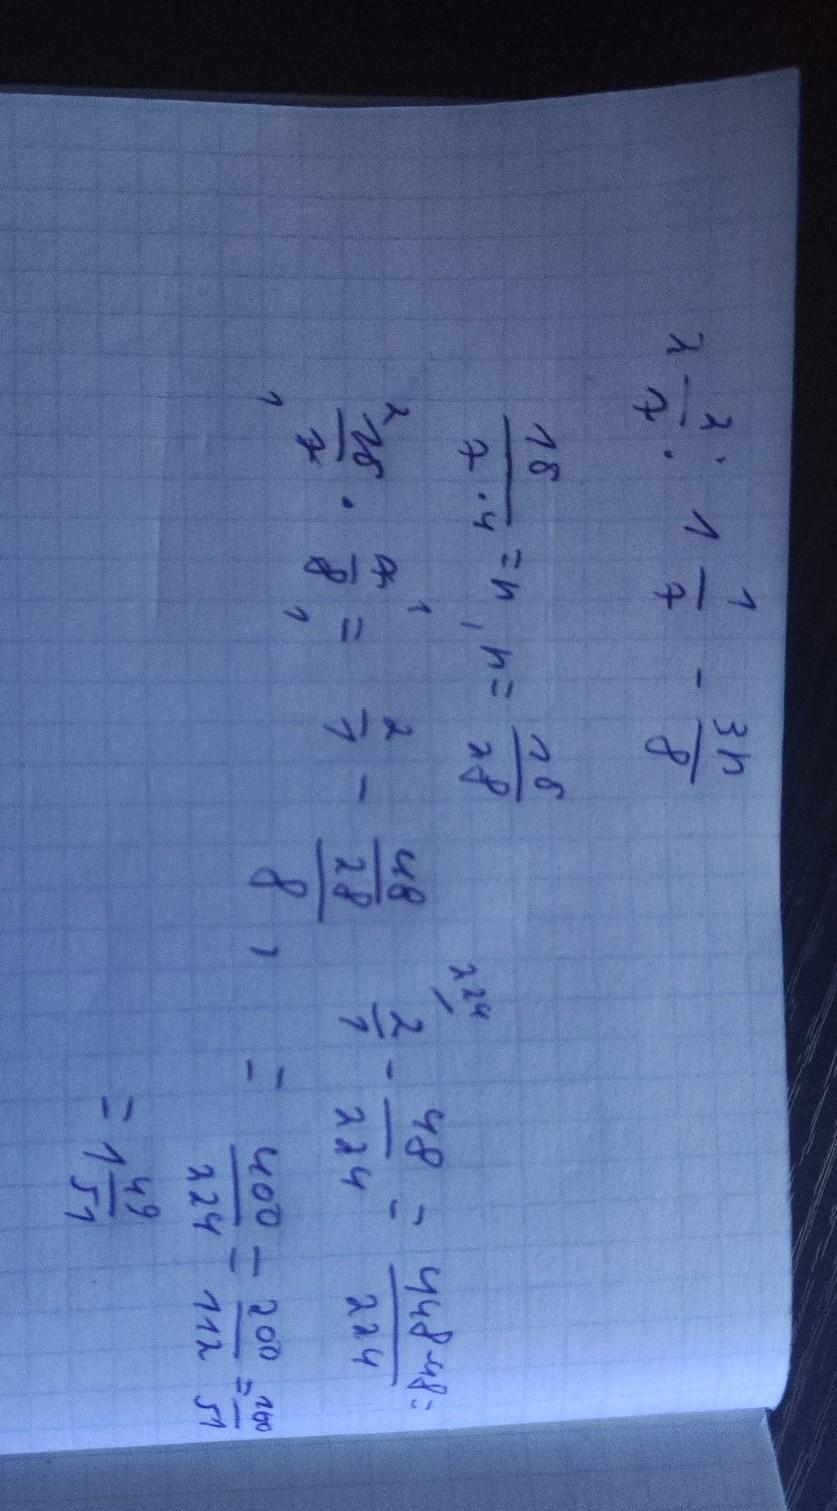 2 2/7 : 1 1/7 - 3n/8
16/(7·4) = n, n = 16/28
16/7 · 7/8 = 2/1 - (48/28)/8, 2/1 - 48/224 = (448-48)/224 =
= 400/224 = 200/112 = 100/51
= 1 49/51